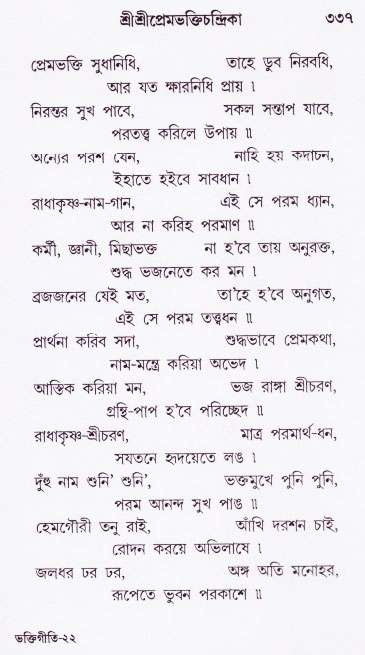 শ্রীশ্রীপ্রেমভক্তিচন্দ্রিকা ৩৩৭
প্রেমভক্তি সুধানিধি, তাহে ডুব নিরবধি,
আর যত ক্ষারনিধি প্রায় ৷
নিরন্তর সুখ পাবে, সকল সন্তাপ যাবে,
পরতত্ত্ব করিলে উপায় ॥
অন্যের পরশ যেন, নাহি হয় কদাচন,
ইহাতে হইবে সাবধান ৷
রাধাকৃষ্ণ-নাম-গান, এই সে পরম ধ্যান,
আর না করিহ পরমাণ ॥
কর্মী, জ্ঞানী, মিছাভক্ত না হ'বে তায় অনুরক্ত,
শুদ্ধ ভজনেতে কর মন ৷
ব্রজজনের যেই মত, তা'হে হ'বে অনুগত,
এই সে পরম তত্ত্বধন ॥
প্রার্থনা করিব সদা, শুদ্ধভাবে প্রেমকথা,
নাম-মন্ত্রে করিয়া অভেদ ৷
আস্তিক করিয়া মন, ভজ রাঙ্গা শ্রীচরণ,
গ্রন্থি-পাপ হ'বে পরিচ্ছেদ ॥
রাধাকৃষ্ণ-শ্রীচরণ, মাত্র পরমার্থ-ধন,
সযতনে হৃদয়েতে লঙ ৷
দুঁহু নাম শুনি' শুনি', ভক্তমুখে পুনি পুনি,
পরম আনন্দ সুখ পাঙ ॥
হেমগৌরী তনু রাই, আঁখি দরশন চাই,
রোদন করয়ে অভিলাষে ৷
জলধর ঢর ঢর, অঙ্গ অতি মনোহর,
রূপেতে ভুবন পরকাশে ॥
ভক্তিগীতি-২২